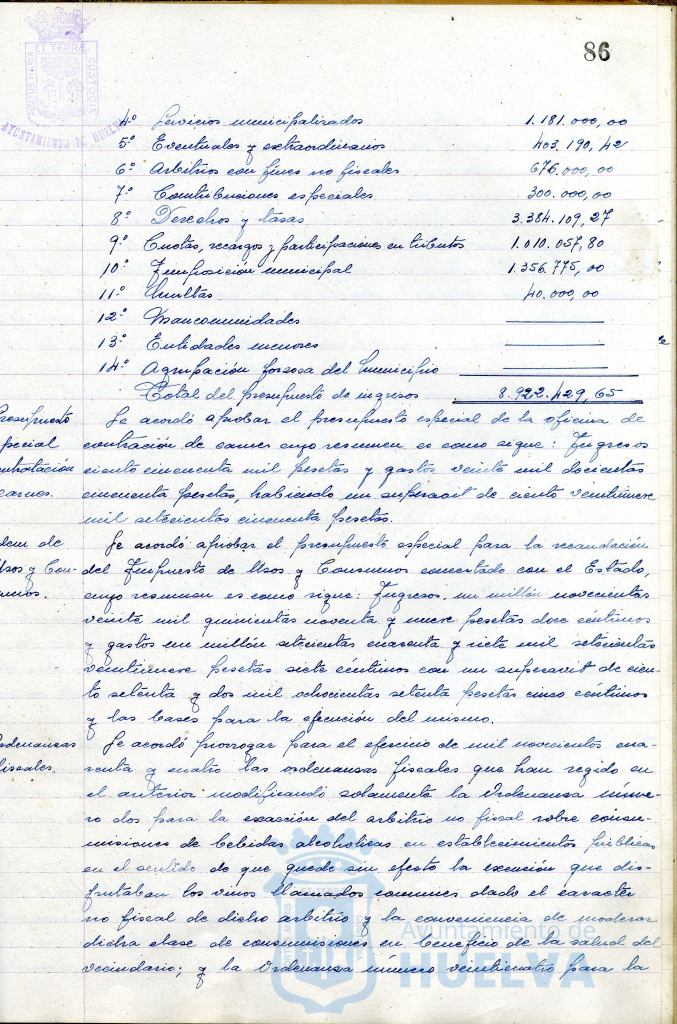 86
PORTUS MARIS ET TERRÆ CUSTODIA
AYUNTAMIENTO DE HUELVA
4º Servicios municipalizados 1.181.000,00
5º Eventuales y extraordinarios 403.190,42
6º Arbitrios con fines no fiscales 676.000,00
7º Contribuciones especiales 300.000,00
8º Derechos y tasas 3.384.109,27
9º Cuotas, recargos y participaciones en tributos 1.010.057,80
10º Imposición municipal 1.356.775,00
11º Multas 40.000,00
12º Mancomunidades
13º Entidades menores
14º Agrupación forzosa del Municipio
Total del presupuesto de ingresos 8.922.429,65
Presupuesto
especial
contratación
carnes.
Se acordó aprobar el presupuesto especial de la oficina de
contración de carnes cuyo resumen es como sigue: Ingresos
ciento cincuenta mil pesetas y gastos veinte mil docientas
cincuenta pesetas, habiendo un superavit de ciento veintinueve
mil setecientas cincuenta pesetas.
Idem de
Usos y Con-
sumos.
Se acordó aprobar el presupuesto especial para la recaudación
del Impuesto de Usos y Consumos concertado con el Estado,
cuyo resumen es como sigue: Ingresos, un millón novecientas
veinte mil quinientas noventa y nueve pesetas doce céntimos
y gastos un millón setecientas cuarenta y siete mil setecientas
veintinueve pesetas siete céntimos con un superavit de cien-
to setenta y dos mil ochocientas setenta pesetas cinco céntimos
y las bases para la ejecución del mismo.
Ordenanzas
fiscales.
Se acordó prorrogar para el ejercicio de mil novecientos cua-
renta y cuatro las ordenanzas fiscales que han regido en
el anterior modificando solamente la Ordenanza núme-
ro dos para la exacción del arbitrio no fiscal sobre consu-
misiones de bebidas alcoholicas en establecimientos públicos
en el sentido de que quede sin efecto la exención que dis-
frutaban los vinos llamados comunes dado el caracter
no fiscal de dicho arbitrio y la conveniencia de moderar
dicha clase de consumisiones en beneficio de la salud del
vecindario; y la Ordenanza número veinticuatro para la
Ayuntamiento de
HUELVA